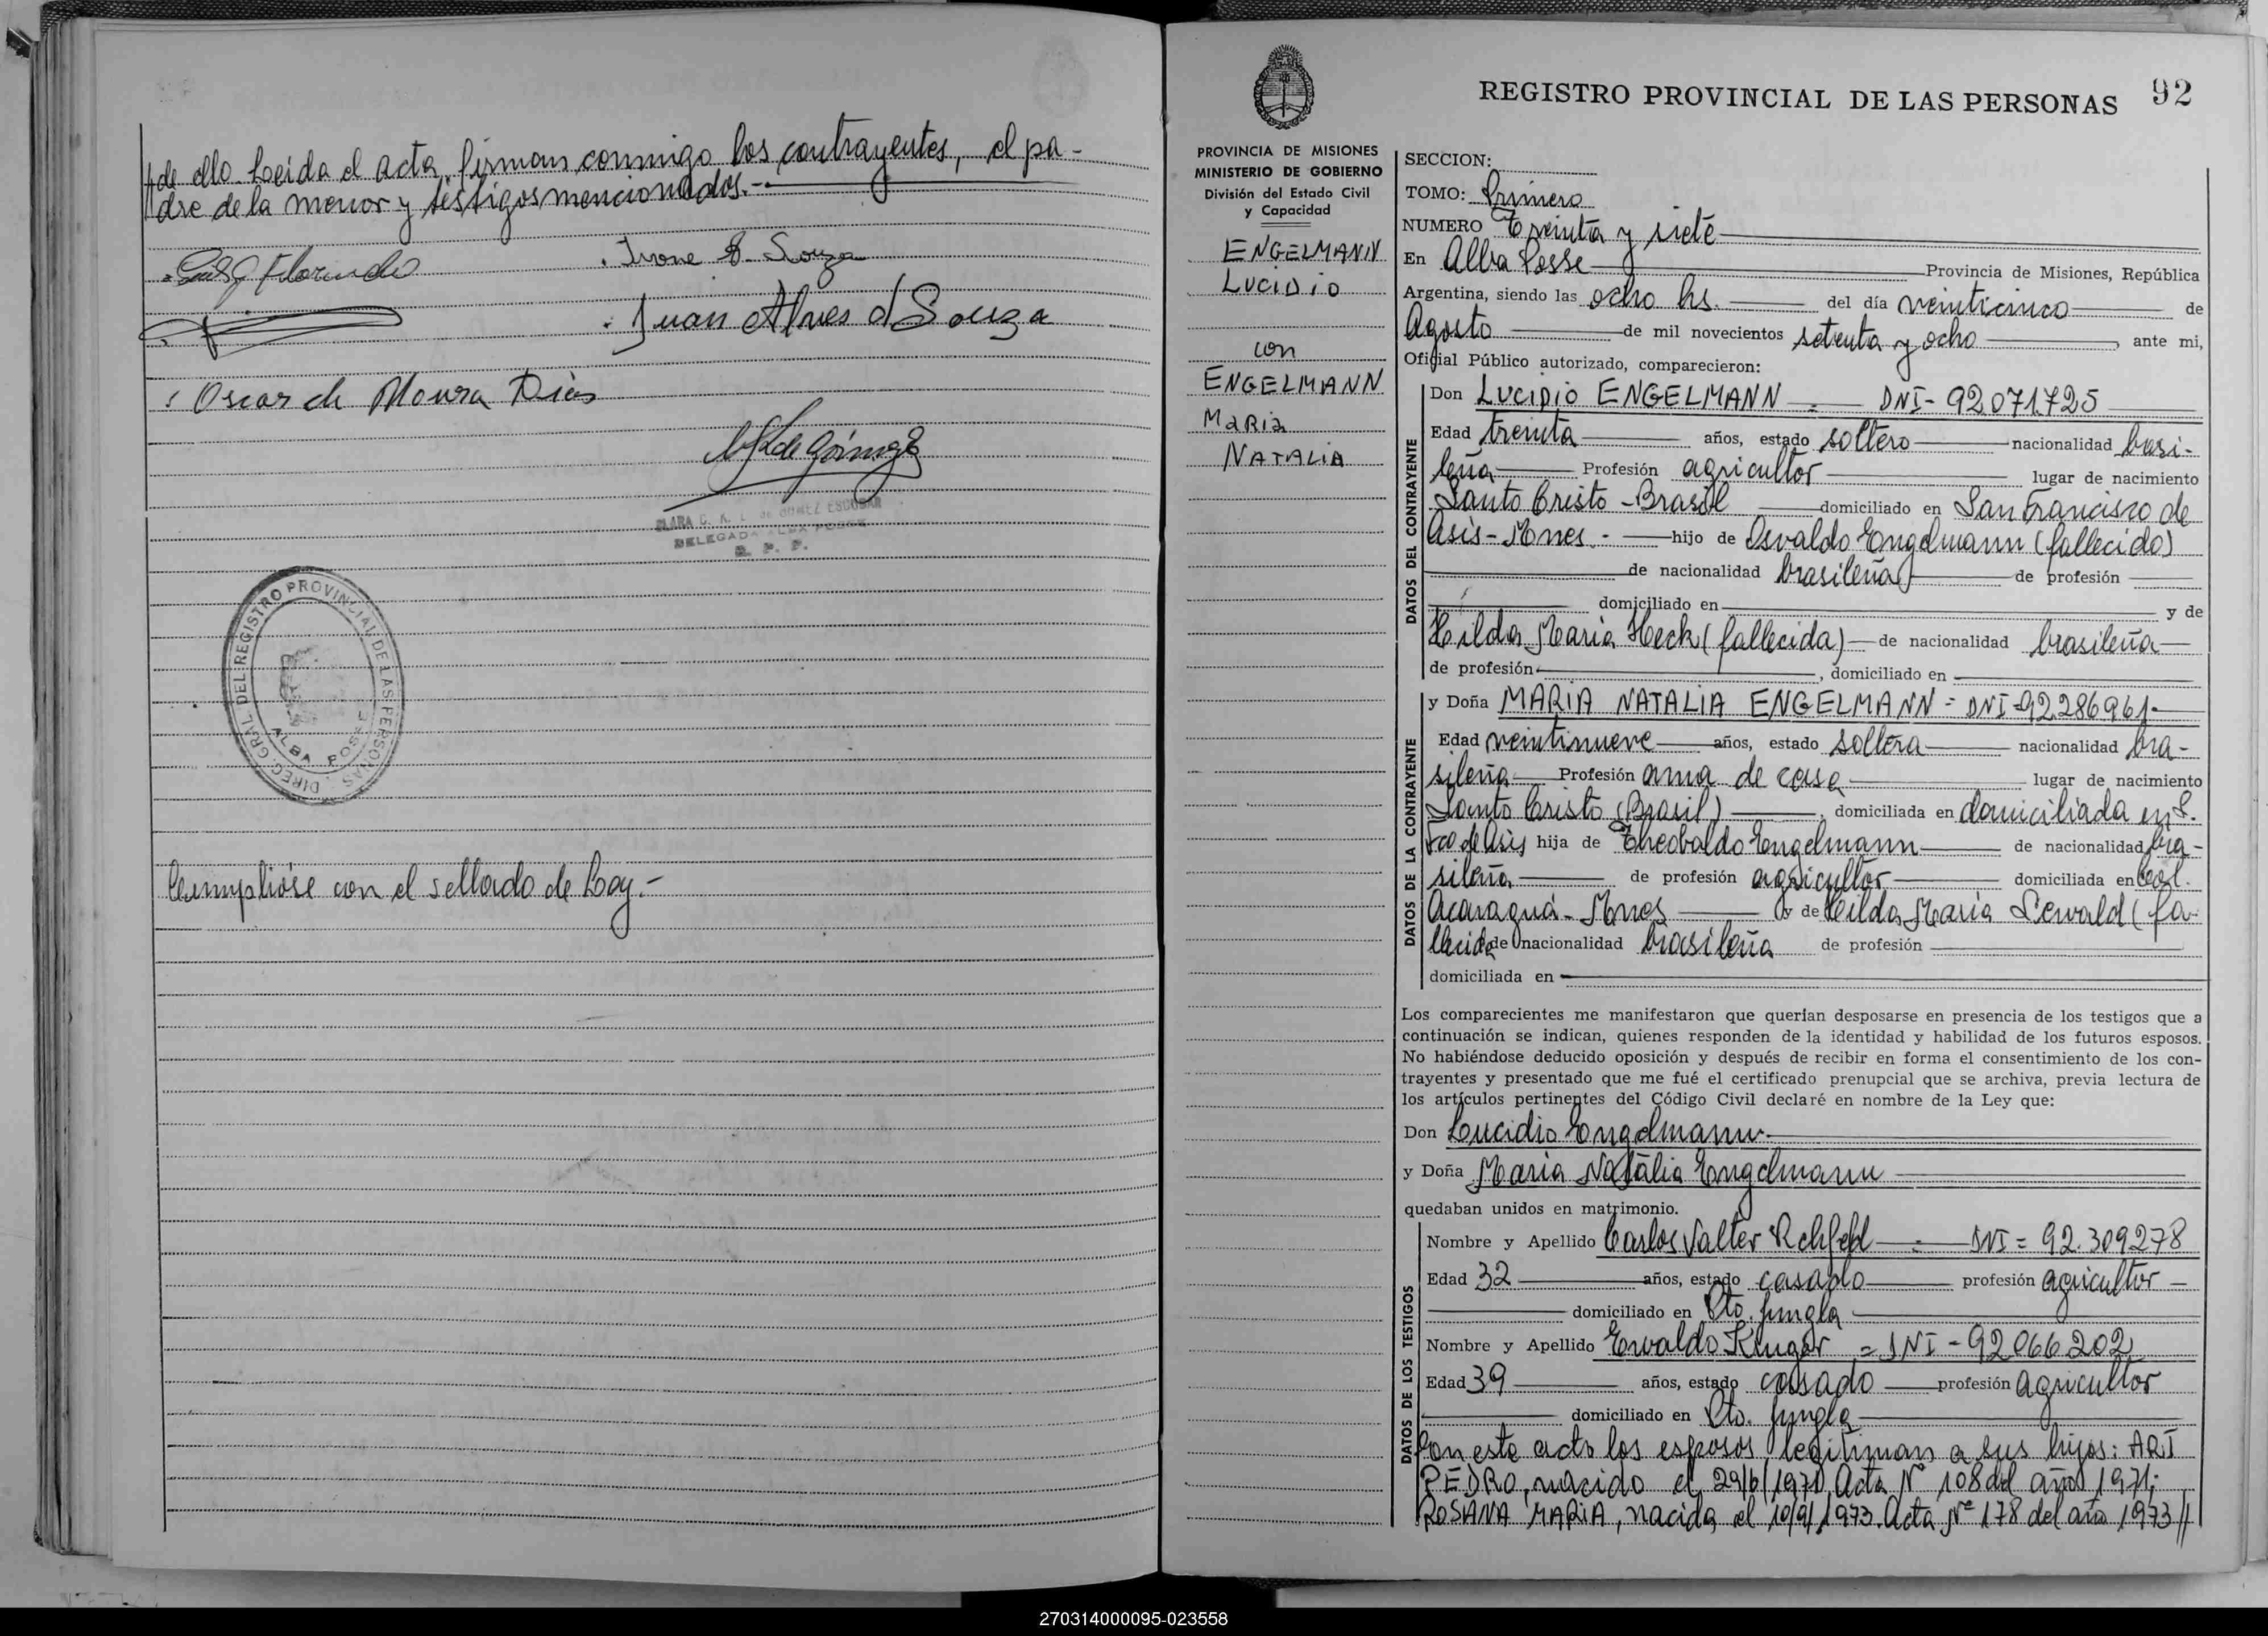 //de ello Leida el acta, firman conmigo los contrayentes, el pa-
dre de la menor y testigos mencionados.-
Luis J Florindo
Ivone S. Souza
Juan Alves d Souza
Oscar de Moura Dias
CLARA C. A. L. de GOMEZ ESCOBAR
DELEGADA ALBA POSSE
R. P. P.
DIREC. GRAL. DEL REGISTRO PROVINCIAL DE LAS PERSONAS
ALBA POSSE
Cumplióse con el sellado de Ley.-
REGISTRO PROVINCIAL DE LAS PERSONAS 92
PROVINCIA DE MISIONES
MINISTERIO DE GOBIERNO
División del Estado Civil
y Capacidad
ENGELMANN
LUCIDIO
con
ENGELMANN
MARIA
NATALIA
SECCION:
TOMO: Primero
NUMERO Treinta y siete
En Alba Posse Provincia de Misiones, República
Argentina, siendo las ocho hs. del día veinticinco de
Agosto de mil novecientos setenta y ocho, ante mi,
Oficial Público autorizado, comparecieron:
DATOS DEL CONTRAYENTE
Don LUCIDIO ENGELMANN = DNI- 92071.725
Edad treinta años, estado soltero nacionalidad brasi-
leña Profesión agricultor lugar de nacimiento
Santo Cristo - Brasil domiciliado en San Francisco de
Asis - Mnes. - hijo de Osvaldo Engelmann (fallecido)
de nacionalidad brasileña de profesión
domiciliado en y de
Hilda Maria Heck (fallecida) de nacionalidad brasileña
de profesión , domiciliado en
DATOS DE LA CONTRAYENTE
y Doña MARIA NATALIA ENGELMANN = DNI-92.286961-
Edad veintinueve años, estado soltera nacionalidad bra-
sileña Profesión ama de casa lugar de nacimiento
Santo Cristo (Brasil) , domiciliada en domiciliada en S.
Fco de Asis hija de Theobaldo Engelmann de nacionalidad bra-
sileña de profesión agricultor domiciliada en Col.
Acaraguá - Mnes y de Hilda Maria Lewald (fa-
llecida de nacionalidad brasileña de profesión
domiciliada en
Los comparecientes me manifestaron que querían desposarse en presencia de los testigos que a
continuación se indican, quienes responden de la identidad y habilidad de los futuros esposos.
No habiéndose deducido oposición y después de recibir en forma el consentimiento de los con-
trayentes y presentado que me fué el certificado prenupcial que se archiva, previa lectura de
los artículos pertinentes del Código Civil declaré en nombre de la Ley que:
Don Lucidio Engelmann.
y Doña Maria Natalia Engelmann
quedaban unidos en matrimonio.
DATOS DE LOS TESTIGOS
Nombre y Apellido Carlos Valter = DNI = 92.309278
Edad 32 años, estado casado profesión agricultor
domiciliado en Pto. Jungla
Nombre y Apellido Ervaldo Kruger = DNI - 92066.202
Edad 39 años, estado casado profesión agricultor
domiciliado en Pto. Jungla
Con este acto los esposos legitiman a sus hijos: ARI
PEDRO, nacido el 29/6/1971 Acta Nº 108 del año 1971;
ROSANA MARIA, nacida el 10/9/1973. Acta Nº 178 del año 1973//
270314000095-023558